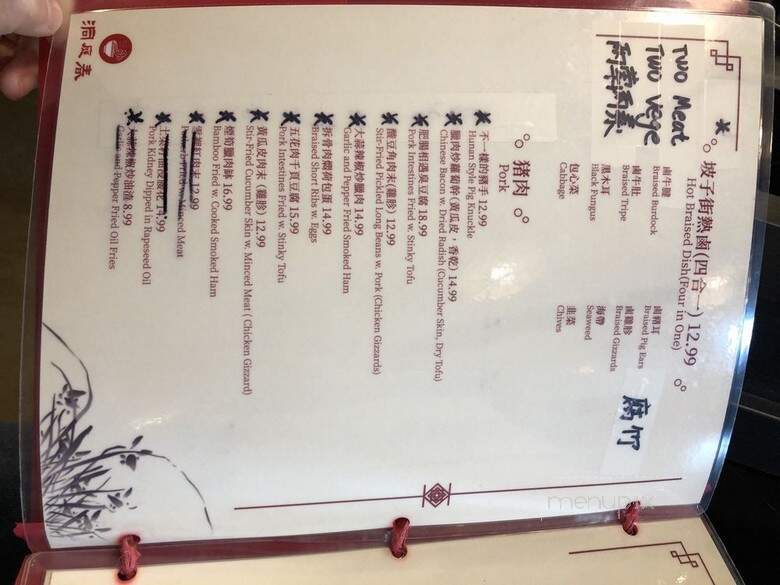 TWO Meat
TWO Vege
兩葷兩素
坡子街熱鹵(四合一) 12.99
Hot Braised Dish(Four in One)
鹵牛腱
Braised Burdock
鹵豬耳
Braised Pig Ears
鹵牛肚
Braised Tripe
鹵雞胗
Braised Gizzards
黑木耳
Black Fungus
海帶
Seaweed
包心菜
Cabbage
韭菜
Chives
腐竹
豬肉
Pork
不一樣的豬手 12.99
Hunan Style Pig Knuckle
臘肉炒蘿蔔幹(黃瓜皮，香乾) 14.99
Chinese Bacon w. Dried Radish (Cucumber Skin, Dry Tofu)
肥腸相遇臭豆腐 18.99
Pork Intestines Fried w. Stinky Tofu
酸豆角肉末(雞胗) 12.99
Stir-Fried Pickled Long Beans w. Pork (Chicken Gizzards)
大蒜辣椒炒臘肉 14.99
Garlic and Pepper Fried Smoked Ham
拆骨肉燜荷包蛋 14.99
Braised Short Ribs w. Eggs
五花肉千頁豆腐 15.99
Pork Intestines Fried w. Stinky Tofu
黃瓜皮肉末(雞胗) 12.99
Stir-Fried Cucumber Skin w. Minced Meat ( Chicken Gizzard)
煙筍臘肉缽 16.99
Bamboo Fried w. Cooked Smoked Ham
肉末 12.99
Minced Meat
14.99
Pork Kidney Dipped in Rapeseed Oil
辣椒炒油渣 8.99
Garlic and Pepper Fried Oil Fries
洞庭春
menupix